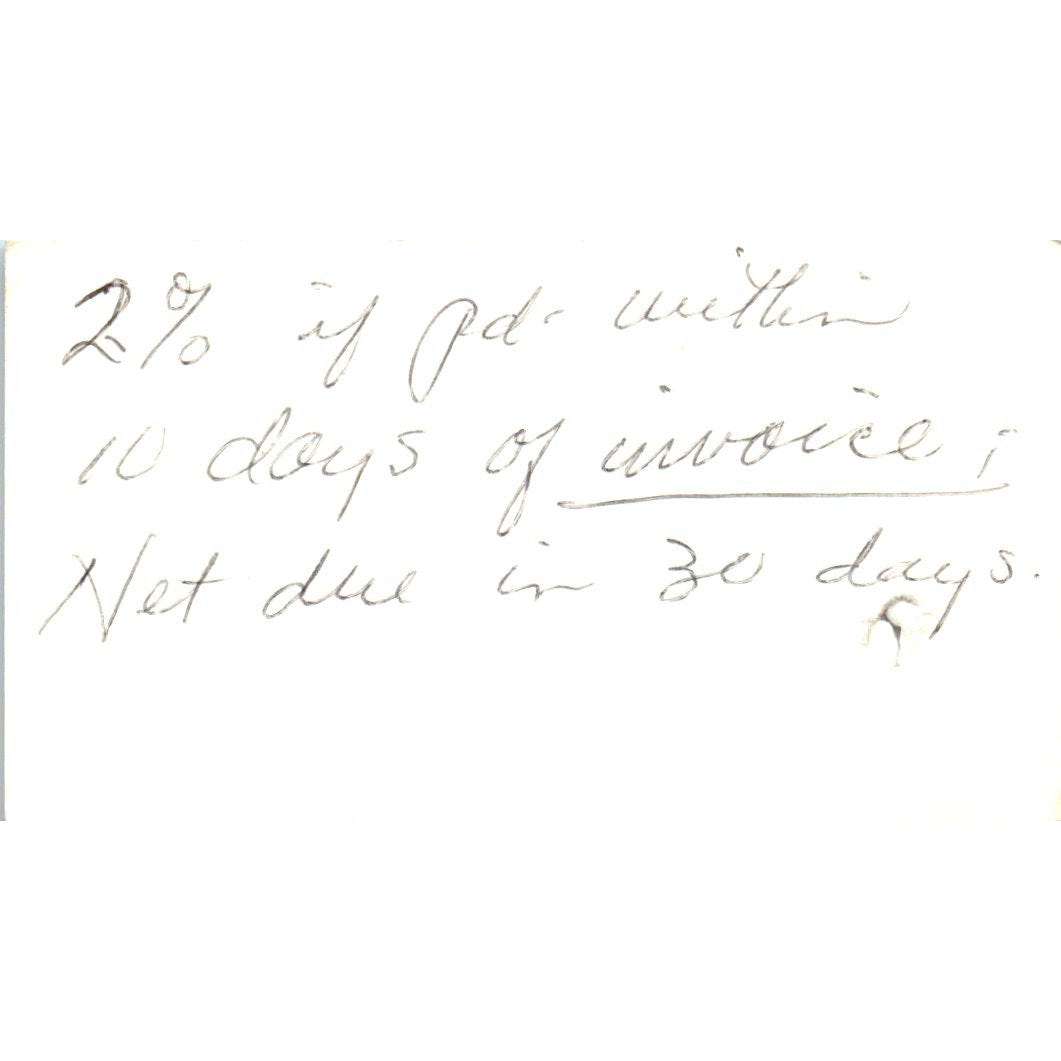 2% if pd. within
10 days of invoice;
Net due in 30 days.